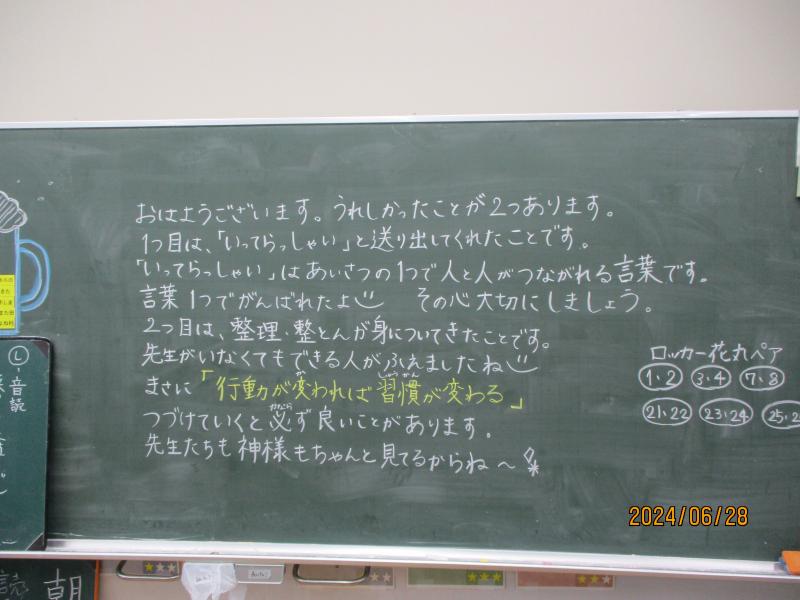 おはようございます。うれしかったことが2つあります。
1つ目は、「いってらっしゃい」と送り出してくれたことです。
「いってらっしゃい」はあいさつの1つで人と人がつながれる言葉です。
言葉1つでがんばれたよ その心大切にしましょう。
2つ目は、整理・整とんが身についてきたことです。
先生がいなくてもできる人がふえましたね
まさに「行動が変われば習慣が変わる」
つづけていくと必ず良いことがあります。
先生たちも神様もちゃんと見てるからね〜
ロッカー花丸ペア
1・2 3・4 7・8
21・22 23・24
音読
朝
2024/06/28